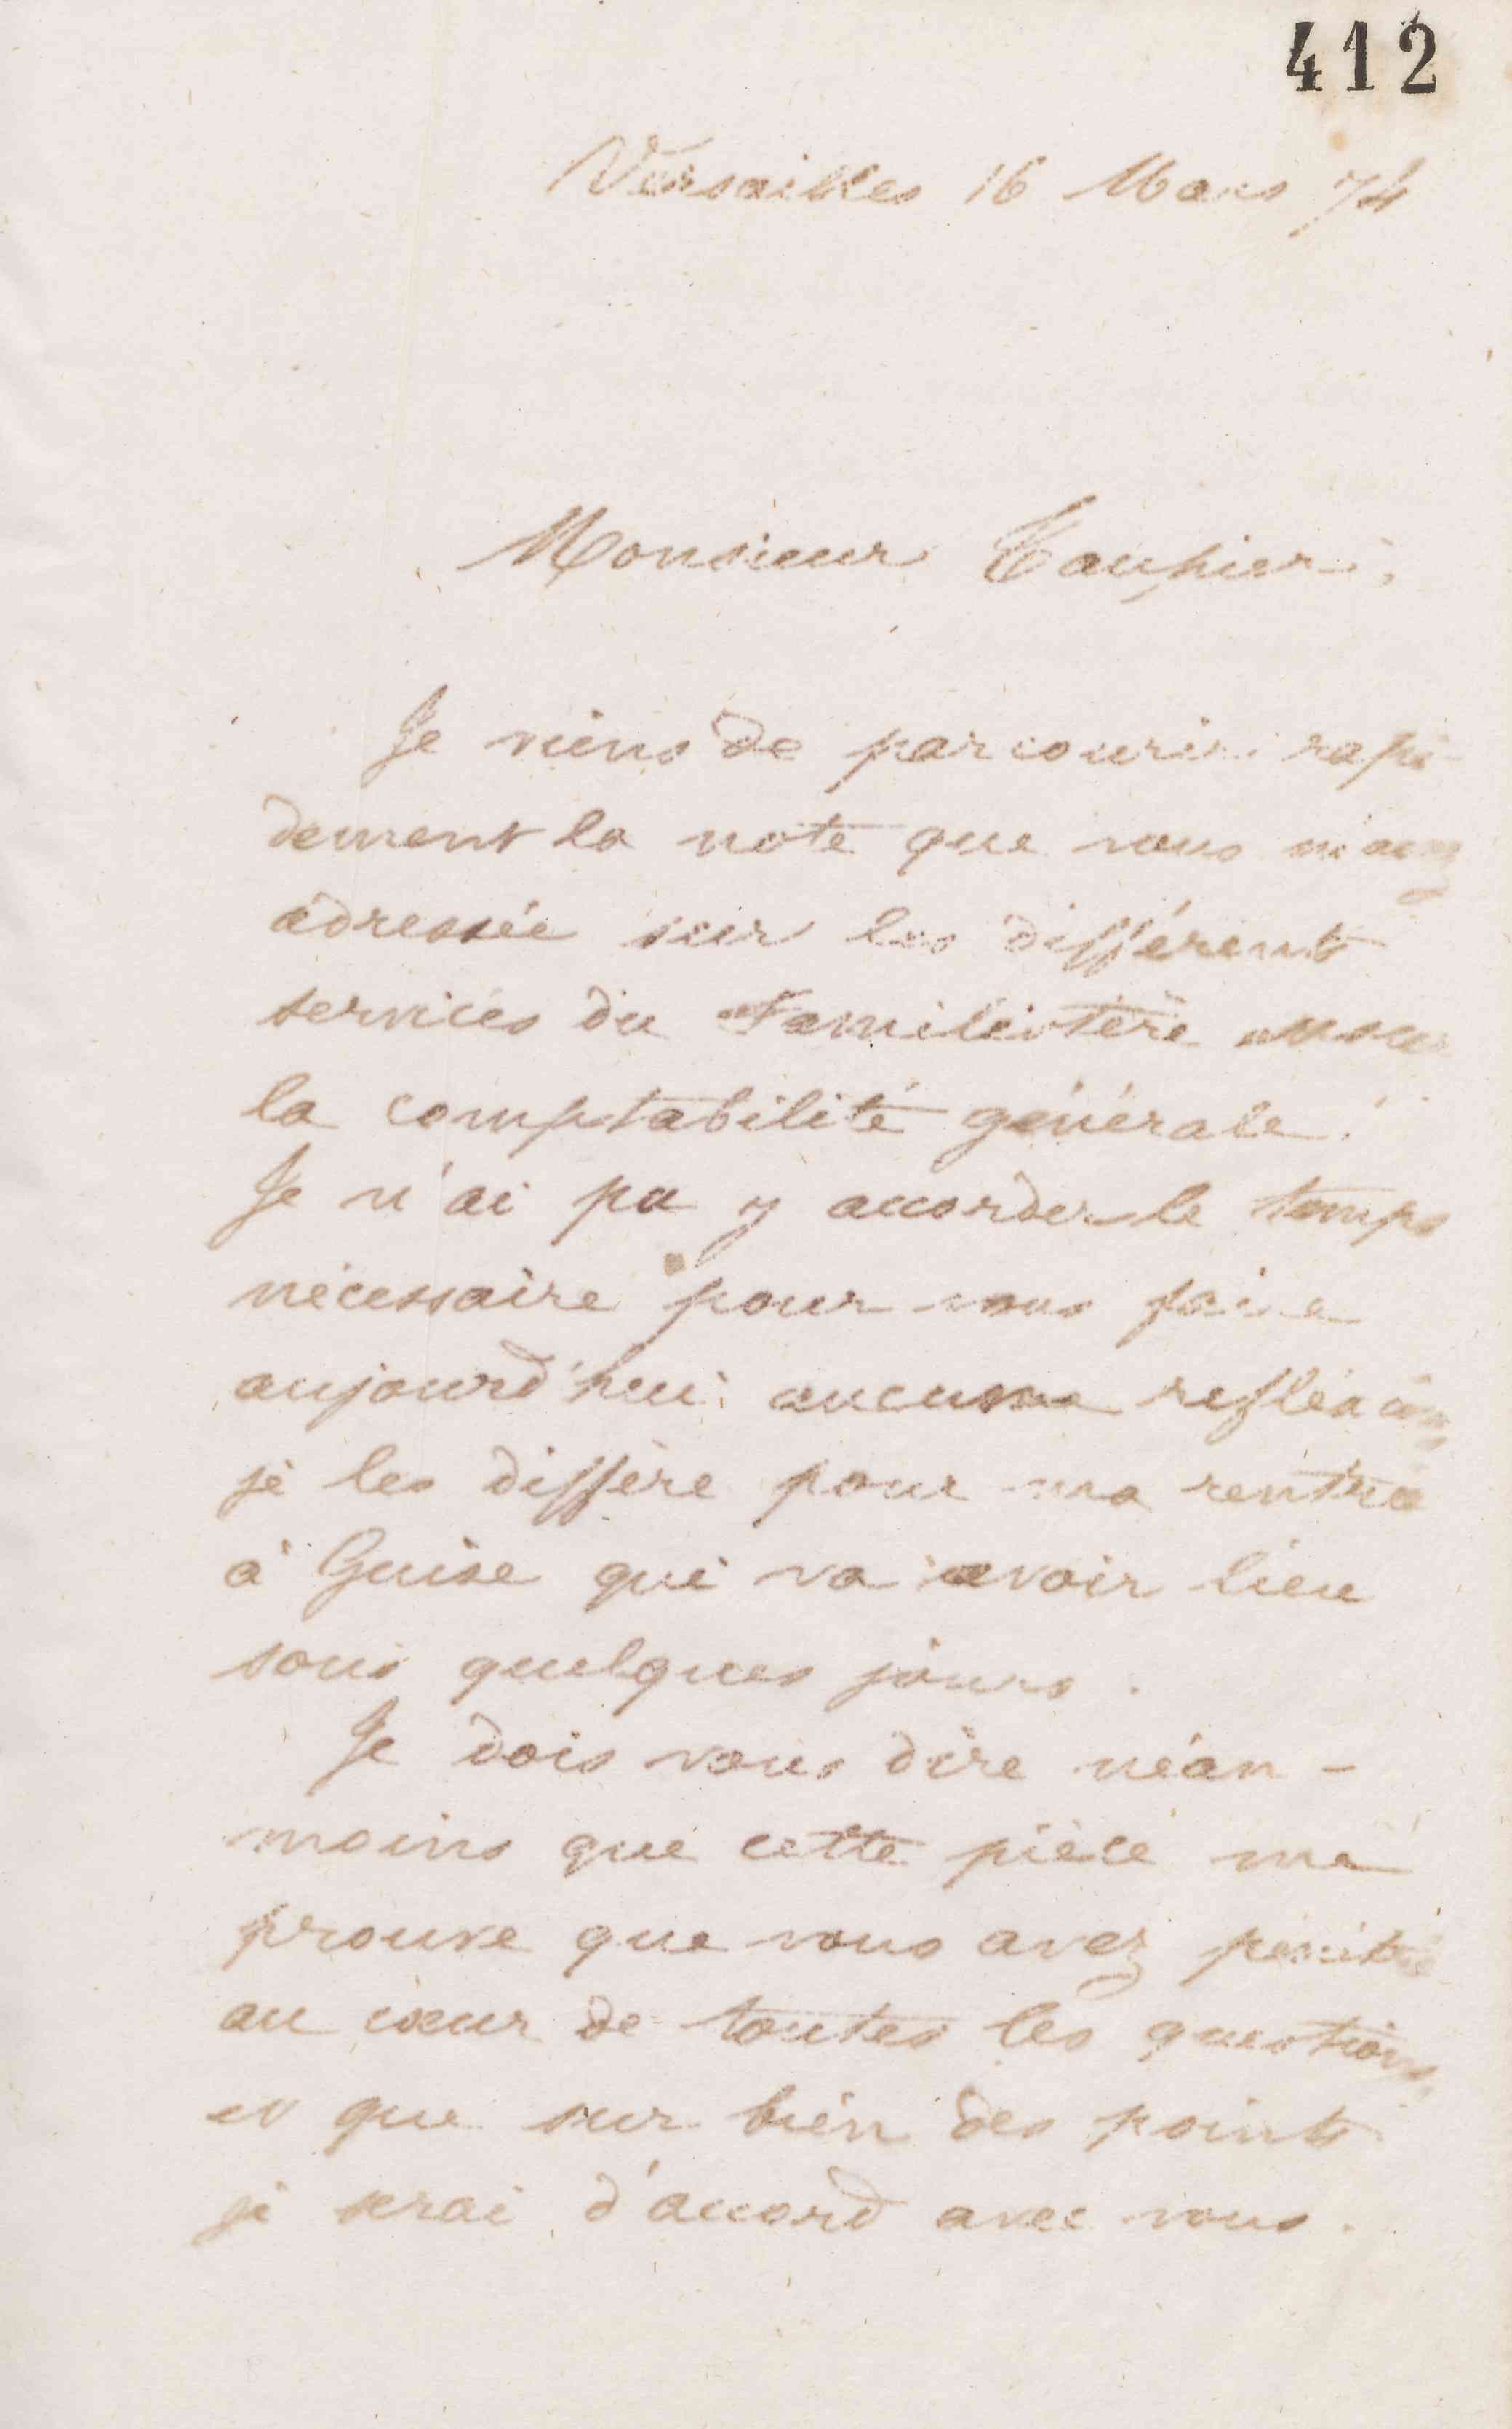 412
Versailles 16 Mars 74
Monsieur Taupier,
Je viens de parcourir rapi-
dement la note que vous m'avez
adressée sur les différents
services du Familistère et sur
la comptabilité générale.
Je n'ai pu y accorder le temps
nécessaire pour vous faire
aujourd'hui aucune reflexion,
je les diffère pour ma rentrée
à Guise qui va avoir lieu
sous quelques jours.
Je dois vous dire néan-
moins que cette pièce me
prouve que vous avez pénétré
au cœur de toutes les questions,
et que sur bien des points
je serai d'accord avec vous.